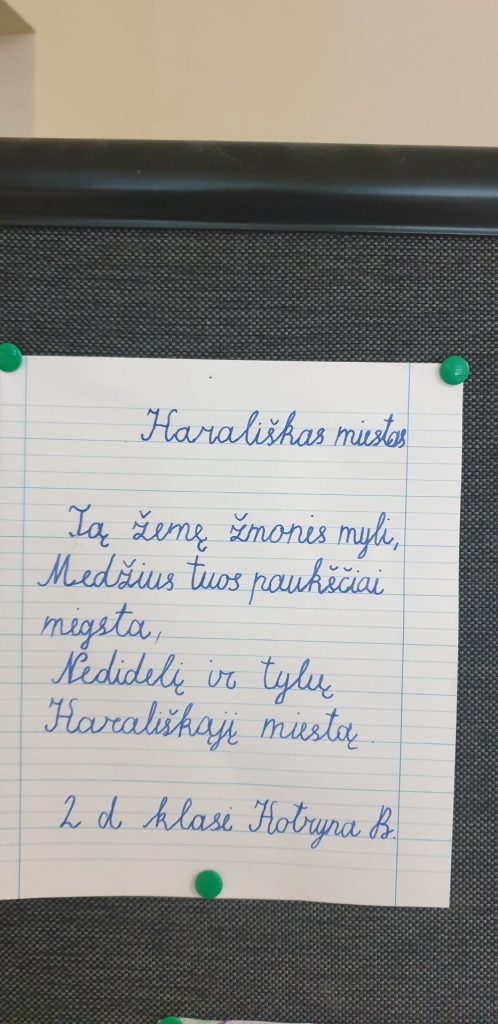 Karališkas miestas
Tą žemę žmonės myli,
Medžius tuos paukščiai
mėgsta,
Nedidelį ir tylų
Karališkąjį miestą.
2 d klasė Kotryna B.